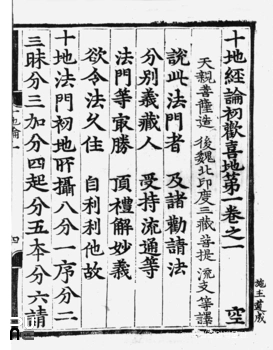 十地經論初歡喜地第一卷之一 空
天親菩薩造 後魏北印度三藏菩提流支等譯
說此法門者 及諸勸請法
分別義藏人 受持流通等
法門等㝡勝 頂禮解妙義
欲令法久住 自利利他故
十地法門初地所攝八分一序分二
三昧分三加分四起分五本分六請
四